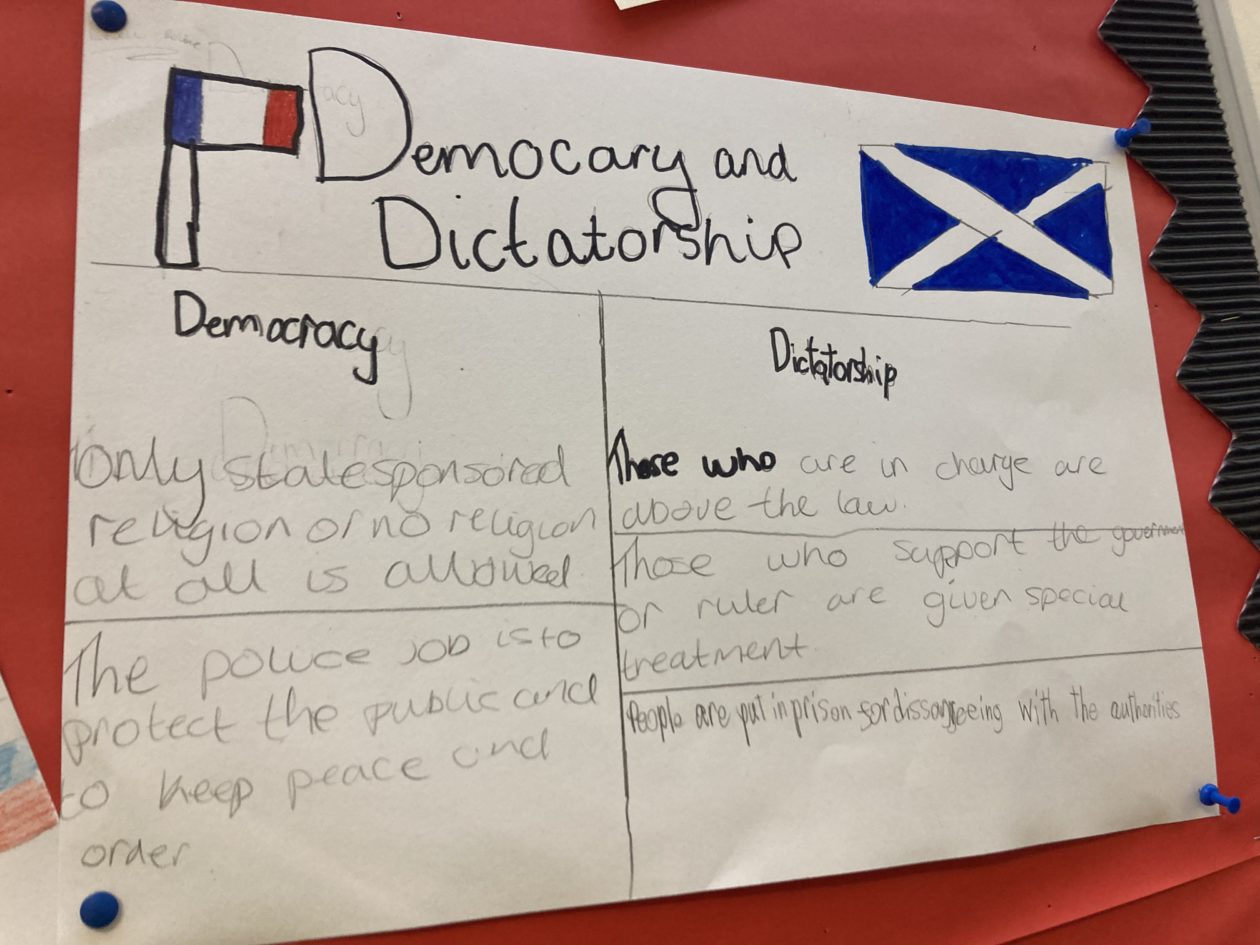 Democary and
Dictatorship
Democracy
Only state sponsored
religion or no religion
at all is allowed
The police job is to
protect the public and
to keep peace and
order
Dictatorship
Those who are in charge are
above the law.
Those who support the government
or ruler are given special
treatment
People are put in prison for dissagreeing with the authorities